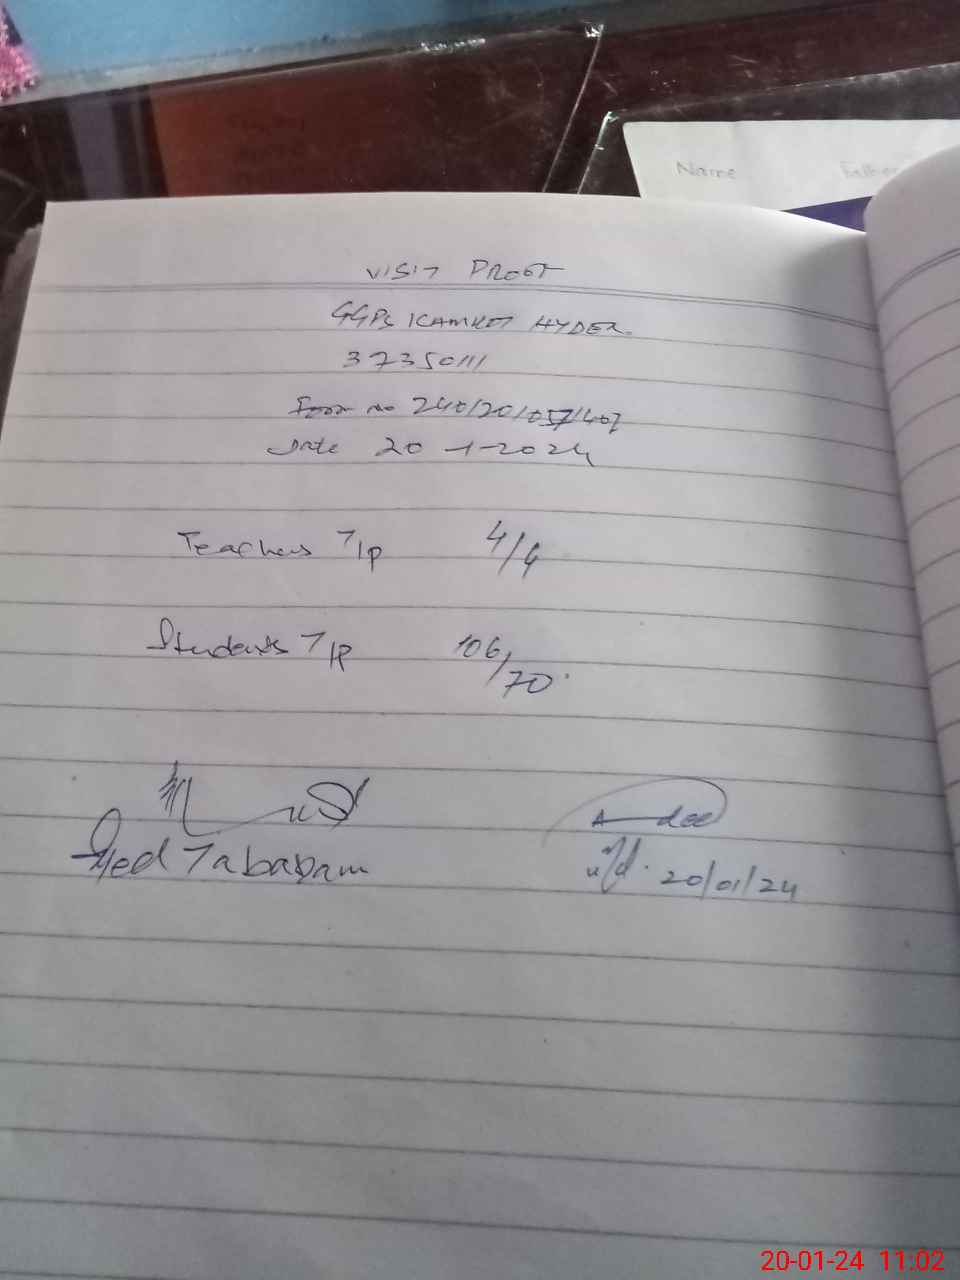 Name Father
VISIT PROOF
GGPS KAMKOT HYDER.
37350111
Form no 240120/057/407
Date 20-1-2024
Teachers T/P 4/4
Students T/P 106/70
Syed Tabassam
20/01/24
20-01-24 11:02